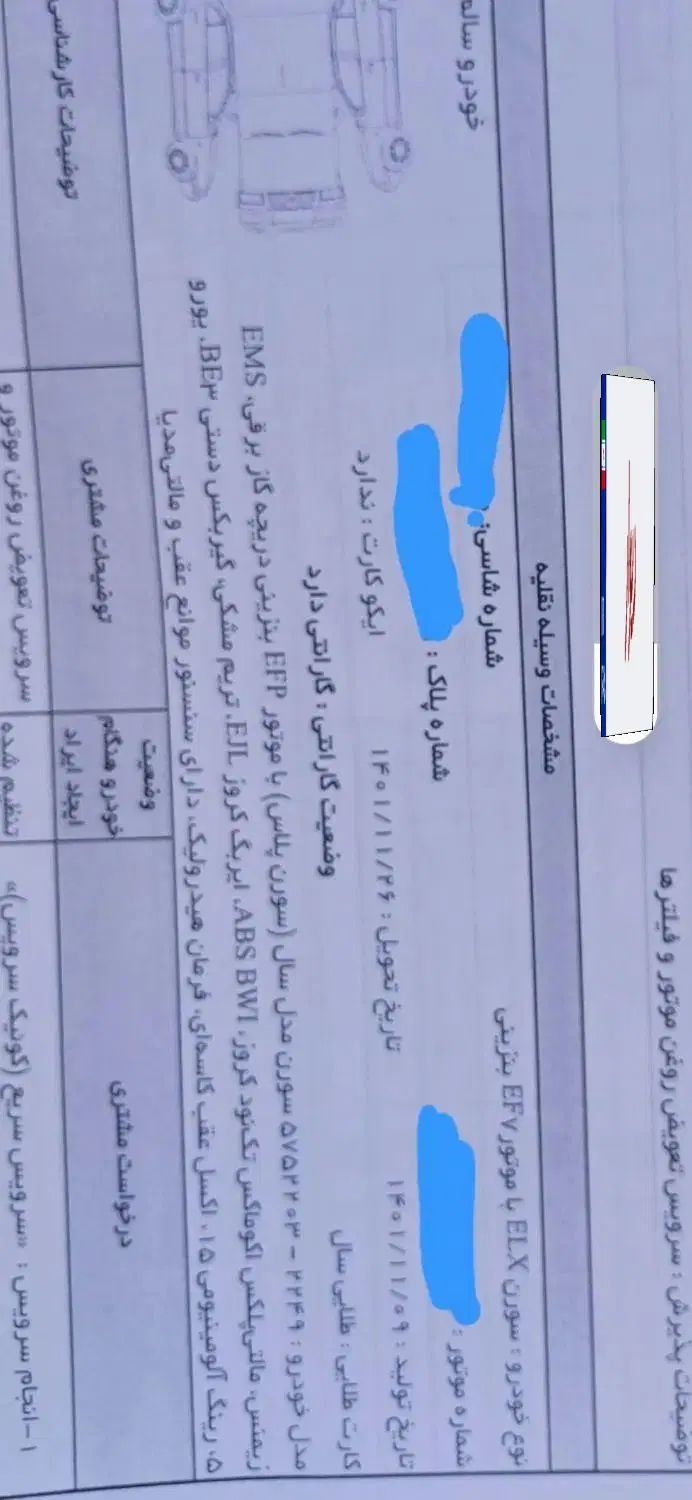 توضیحات پذیرش : سرویس تعویض روغن موتور و فیلترها
مشخصات وسیله نقلیه
نوع خودرو : سورن ELX با موتور EF۷ بنزینی
شماره موتور :
شماره شاسی :
خودرو ساله
تاریخ تولید : ۱۴۰۱/۱۱/۰۹
شماره پلاک :
کارت طلایی : طلایی سال
تاریخ تحویل : ۱۴۰۱/۱۱/۲۶
ایکو کارت : ندارد
وضعیت گارانتی : گارانتی دارد
مدل خودرو : ۲۲۴۹ - ۵۷۵۲۲۰۳ سورن مدل سال (سورن پلاس) با موتور EFP بنزینی دریچه گاز برقی، EMS
زیمنس، مالتی‌پلکس اکوماکس تک‌نود کروز، ABS BWI، ایربگ کروز EJL، تریم مشکی، گیربکس دستی BE۳، یورو
۵، رینگ آلومینیومی ۱۵، اکسل عقب کاسه‌ای، فرمان هیدرولیک، دارای سنسور موانع عقب و مالتی‌مدیا
درخواست مشتری
وضعیت
خودرو هنگام
ایجاد ایراد
توضیحات مشتری
توضیحات کارشناسی
۱-انجام سرویس : «سرویس سریع (کوئیک سرویس)»
تنظیم شده
سرویس تعویض روغن موتور و